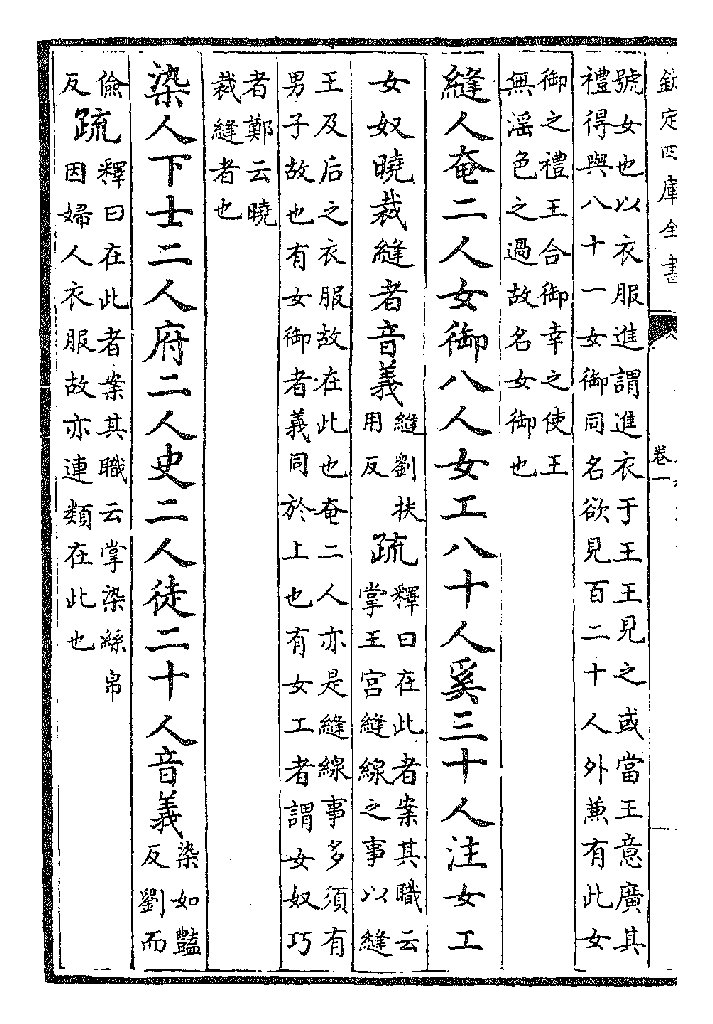 欽定四庫全書
卷一
號女也以衣服進謂進衣于王王見之或當王意廣其
禮得與八十一女御同名欲見百二十人外兼有此女
御之禮王合御幸之使王
無滛色之過故名女御也
縫人奄二人女御八人女工八十人奚三十人注女工
女奴曉裁縫者音義縫劉扶
用反疏釋曰在此者案其職云
掌王宫縫線之事以縫
王及后之衣服故在此也奄二人亦是縫線事多須有
男子故也有女御者義同於上也有女工者謂女奴巧
者鄭云曉
裁縫者也
染人下士二人府二人史二人徒二十人音義染如豔
反劉而
儉
反疏釋曰在此者案其職云掌染絲帛
因婦人衣服故亦連類在此也